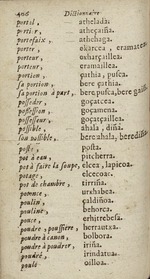 406 Dictionnaire
portail, athelada.
portier, atheçaiña.
portefaix, athecheta.
portre, ekarcea, eramatea
porteur, oxarçaillea.
porteur, eramaillea.
portion, çathia, pusca.
sa portion, bere çathia.
sa portion à part, bere pusca, bere gaiſ
poſſeder, goçatcea.
poſſeſſion, goçamena.
poſſeſſeur, goçaçaillea.
poſſible, ahala, diña.
ſon poſſible, bere ahala, beredi
poſte, poſta.
pot à eau, pitcherra.
pot à faire la soupe, elcea, lapicoa.
potage, elcecoac.
pot de chambre, tirriña.
pommce, urxhabea.
poulin, çaldiñoa.
pouline, behorca.
pouce, erhitrebeſa.
poudre, pouſſiere, herrautxa.
poudre à canon, bolbora.
poudre à poudrer, iriña.
poudré, irindatoa.
poule, oilloa.